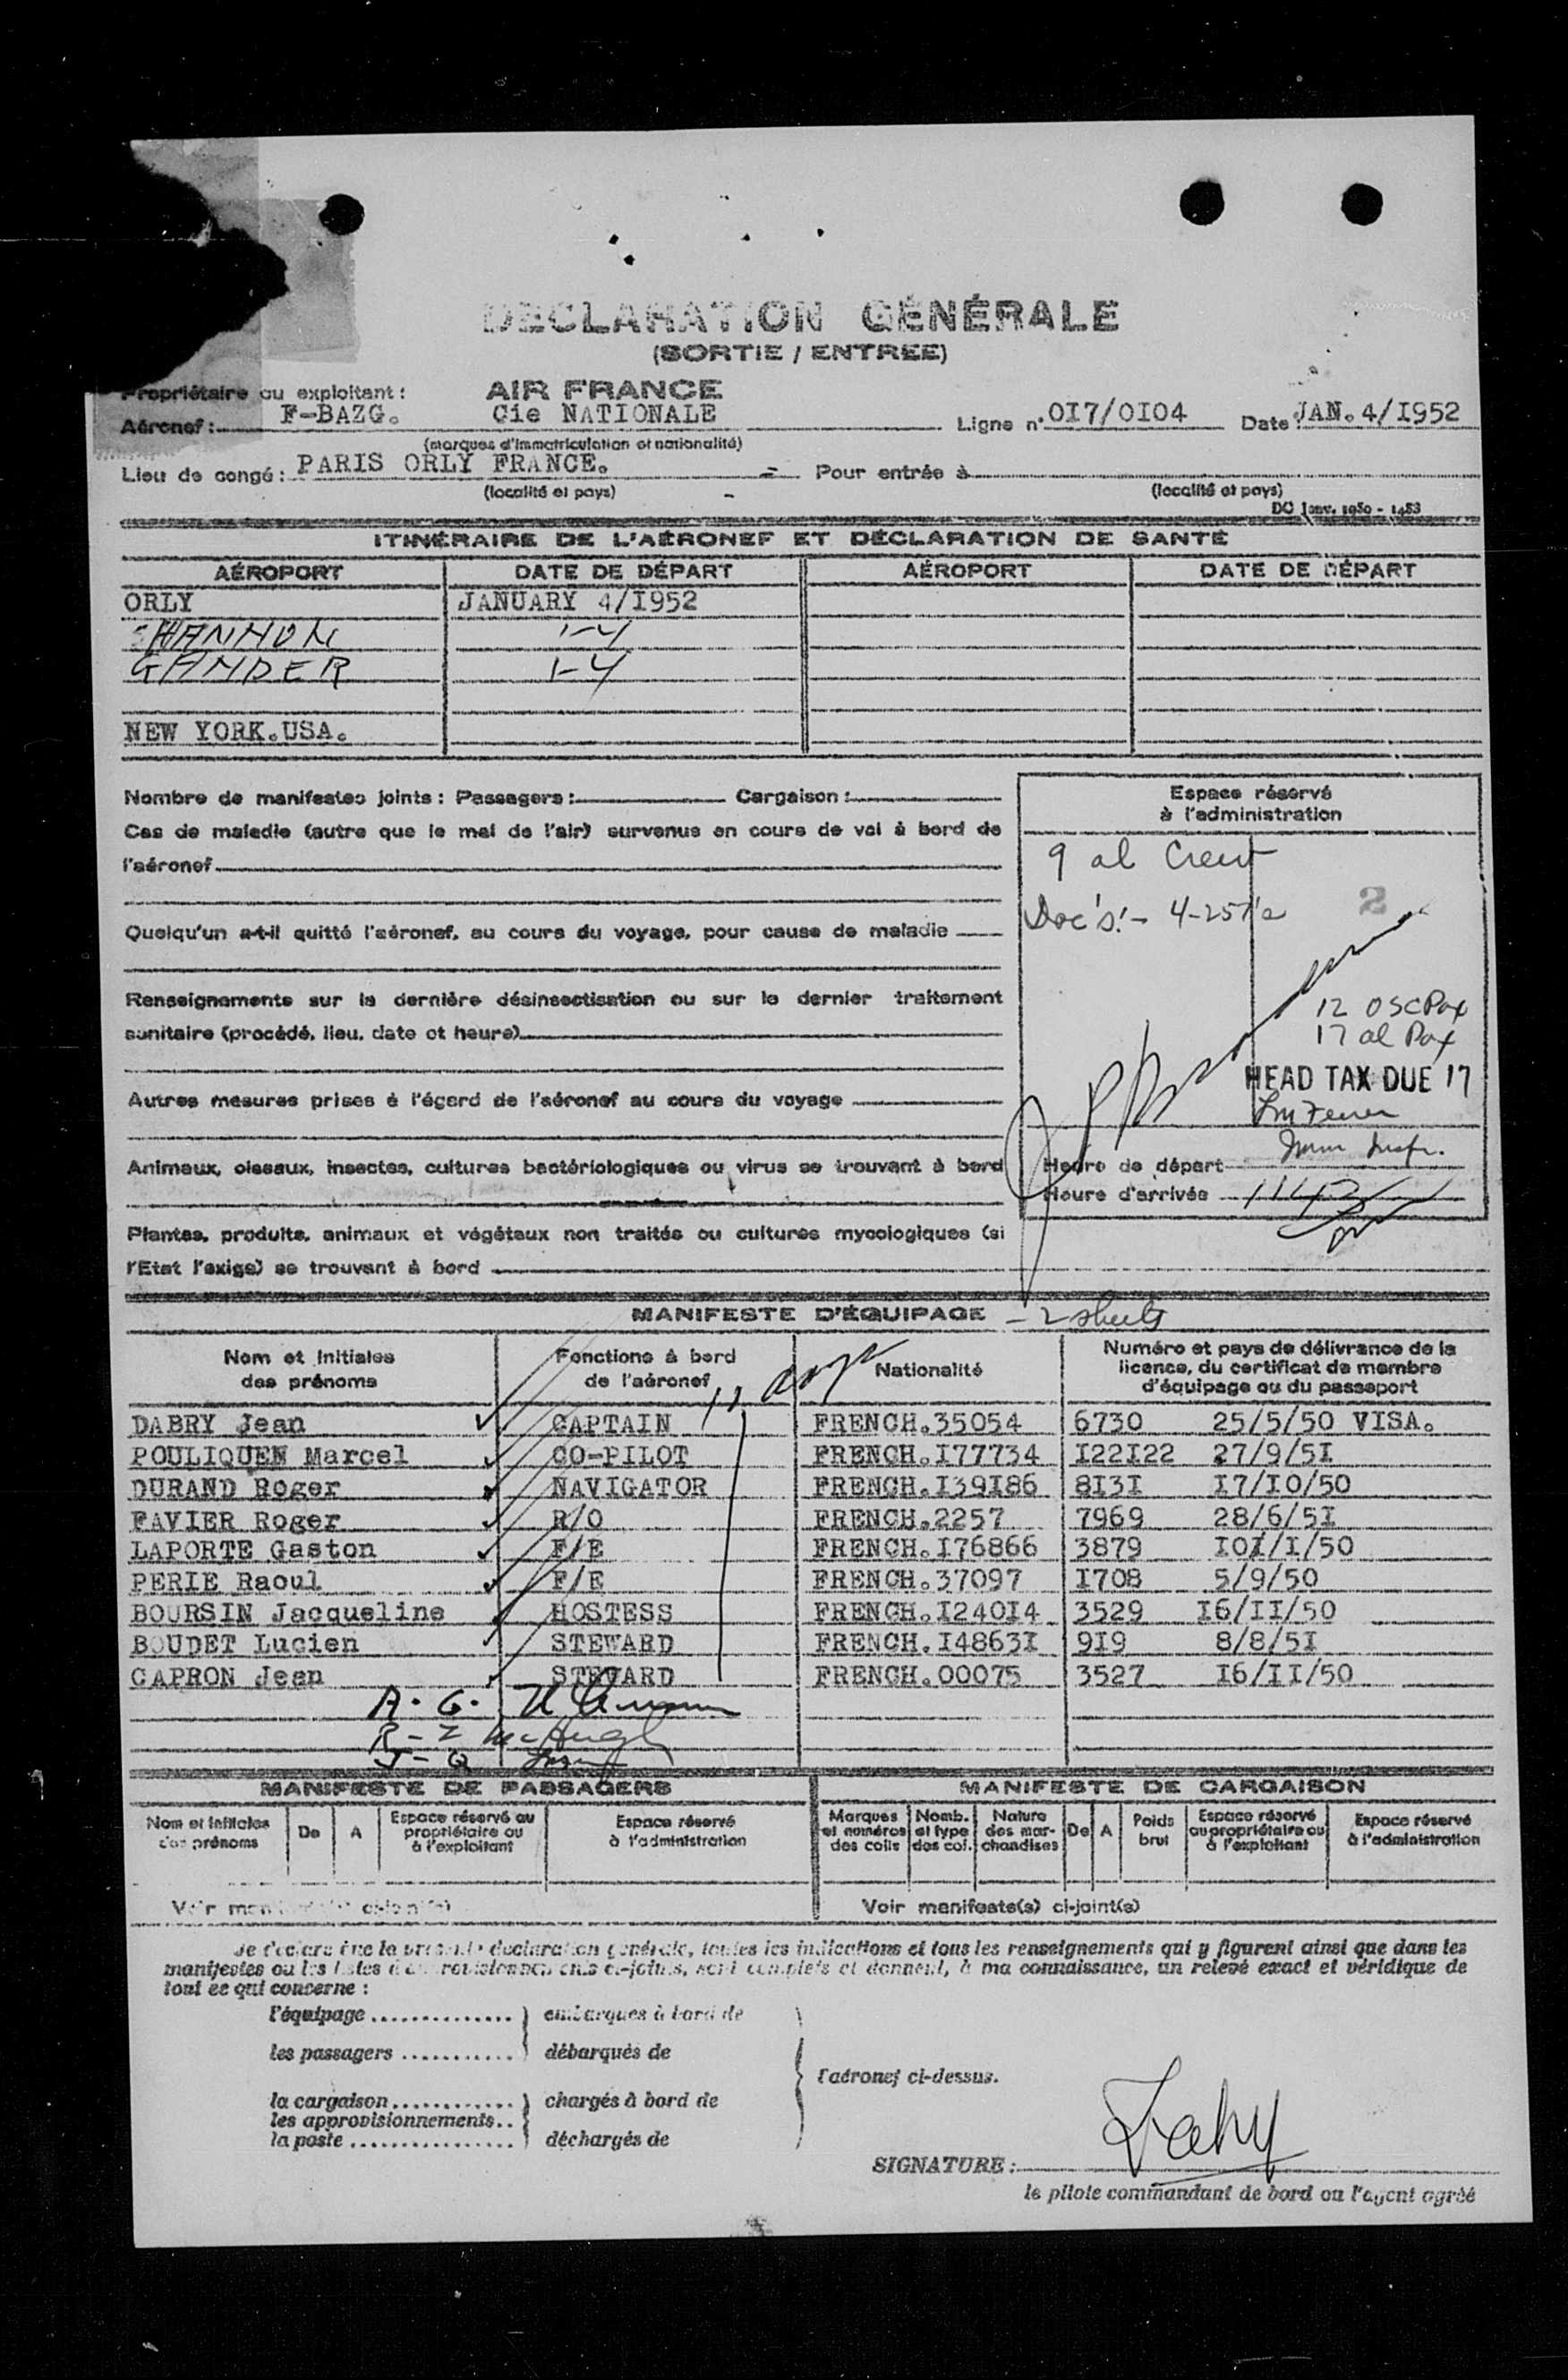 DÉCLARATION GÉNÉRALE
(SORTIE / ENTREE)
Propriétaire ou exploitant : AIR FRANCE
Aéronef : F-BAZG. Cie NATIONALE Ligne n° 0I7/0I04 Date JAN. 4/I952
(marques d'immatriculation et nationalité)
Lieu de congé : PARIS ORLY FRANCE. - Pour entrée à
(localité et pays) - (localité et pays)
DO Janv. 1950 - 1483
ITINÉRAIRE DE L'AÉRONEF ET DÉCLARATION DE SANTÉ
AÉROPORT DATE DE DÉPART AÉROPORT DATE DE DÉPART
ORLY JANUARY 4/I952
SHANNON 1-4
GANDER 1-4
NEW YORK.USA.
Nombre de manifestes joints : Passagers : Cargaison :
Cas de maladie (autre que le mal de l'air) survenus en cours de vol à bord de
l'aéronef
Quelqu'un a-t-il quitté l'aéronef, au cours du voyage, pour cause de maladie
Renseignements sur la dernière désinsectisation ou sur le dernier traitement
sanitaire (procédé, lieu, date et heure)
Autres mesures prises à l'égard de l'aéronef au cours du voyage
Animaux, oiseaux, insectes, cultures bactériologiques ou virus se trouvant à bord
Plantes, produits, animaux et végétaux non traités ou cultures mycologiques (si
l'Etat l'exige) se trouvant à bord
Espace réservé
à l'administration
9 al Crew
Doc's:- 4-257a
2
12 USC Pax
17 al Pax
HEAD TAX DUE 17
Imm Inspr.
Heure de départ
Heure d'arrivée
MANIFESTE D'ÉQUIPAGE - 2 sheets
Nom et initiales des prénoms
Fonctions à bord de l'aéronef
Nationalité
Numéro et pays de délivrance de la licence, du certificat de membre d'équipage ou du passeport
DABRY Jean CAPTAIN FRENCH.35054 6730 25/5/50 VISA.
POULIQUEN Marcel CO-PILOT FRENCH.I77734 I22I22 27/9/5I
DURAND Roger NAVIGATOR FRENCH.I39I86 8I3I I7/I0/50
FAVIER Roger R/O FRENCH.2257 7969 28/6/5I
LAPORTE Gaston F/E FRENCH.I76866 3879 I0I/I/50
PERIE Raoul F/E FRENCH.37097 I708 5/9/50
BOURSIN Jacqueline HOSTESS FRENCH.I240I4 3529 I6/II/50
BOUDET Lucien STEWARD FRENCH.I4863I 9I9 8/8/5I
CAPRON Jean STEWARD FRENCH.00075 3527 I6/II/50
A. G.
R - Z McHugh
J - Q
MANIFESTE DE PASSAGERS MANIFESTE DE CARGAISON
Nom et initiales des prénoms
De
A
Espace réservé au propriétaire ou à l'exploitant
Espace réservé à l'administration
Marques et numéros des colis
Nomb. et type des col.
Nature des marchandises
De
A
Poids brut
Espace réservé au propriétaire ou à l'exploitant
Espace réservé à l'administration
Voir manifeste(s) ci-joint(s) Voir manifeste(s) ci-joint(s)
Je déclare que la présente déclaration générale, toutes les indications et tous les renseignements qui y figurent ainsi que dans les
manifestes ou les listes d'approvisionnements ci-joints, sont complets et donnent, à ma connaissance, un relevé exact et véridique de
tout ce qui concerne :
l'équipage .............. embarqués à bord de
les passagers ........... débarqués de
l'aéronef ci-dessus.
la cargaison ............ chargés à bord de
les approvisionnements..
la poste ................ déchargés de
SIGNATURE :
le pilote commandant de bord ou l'agent agréé